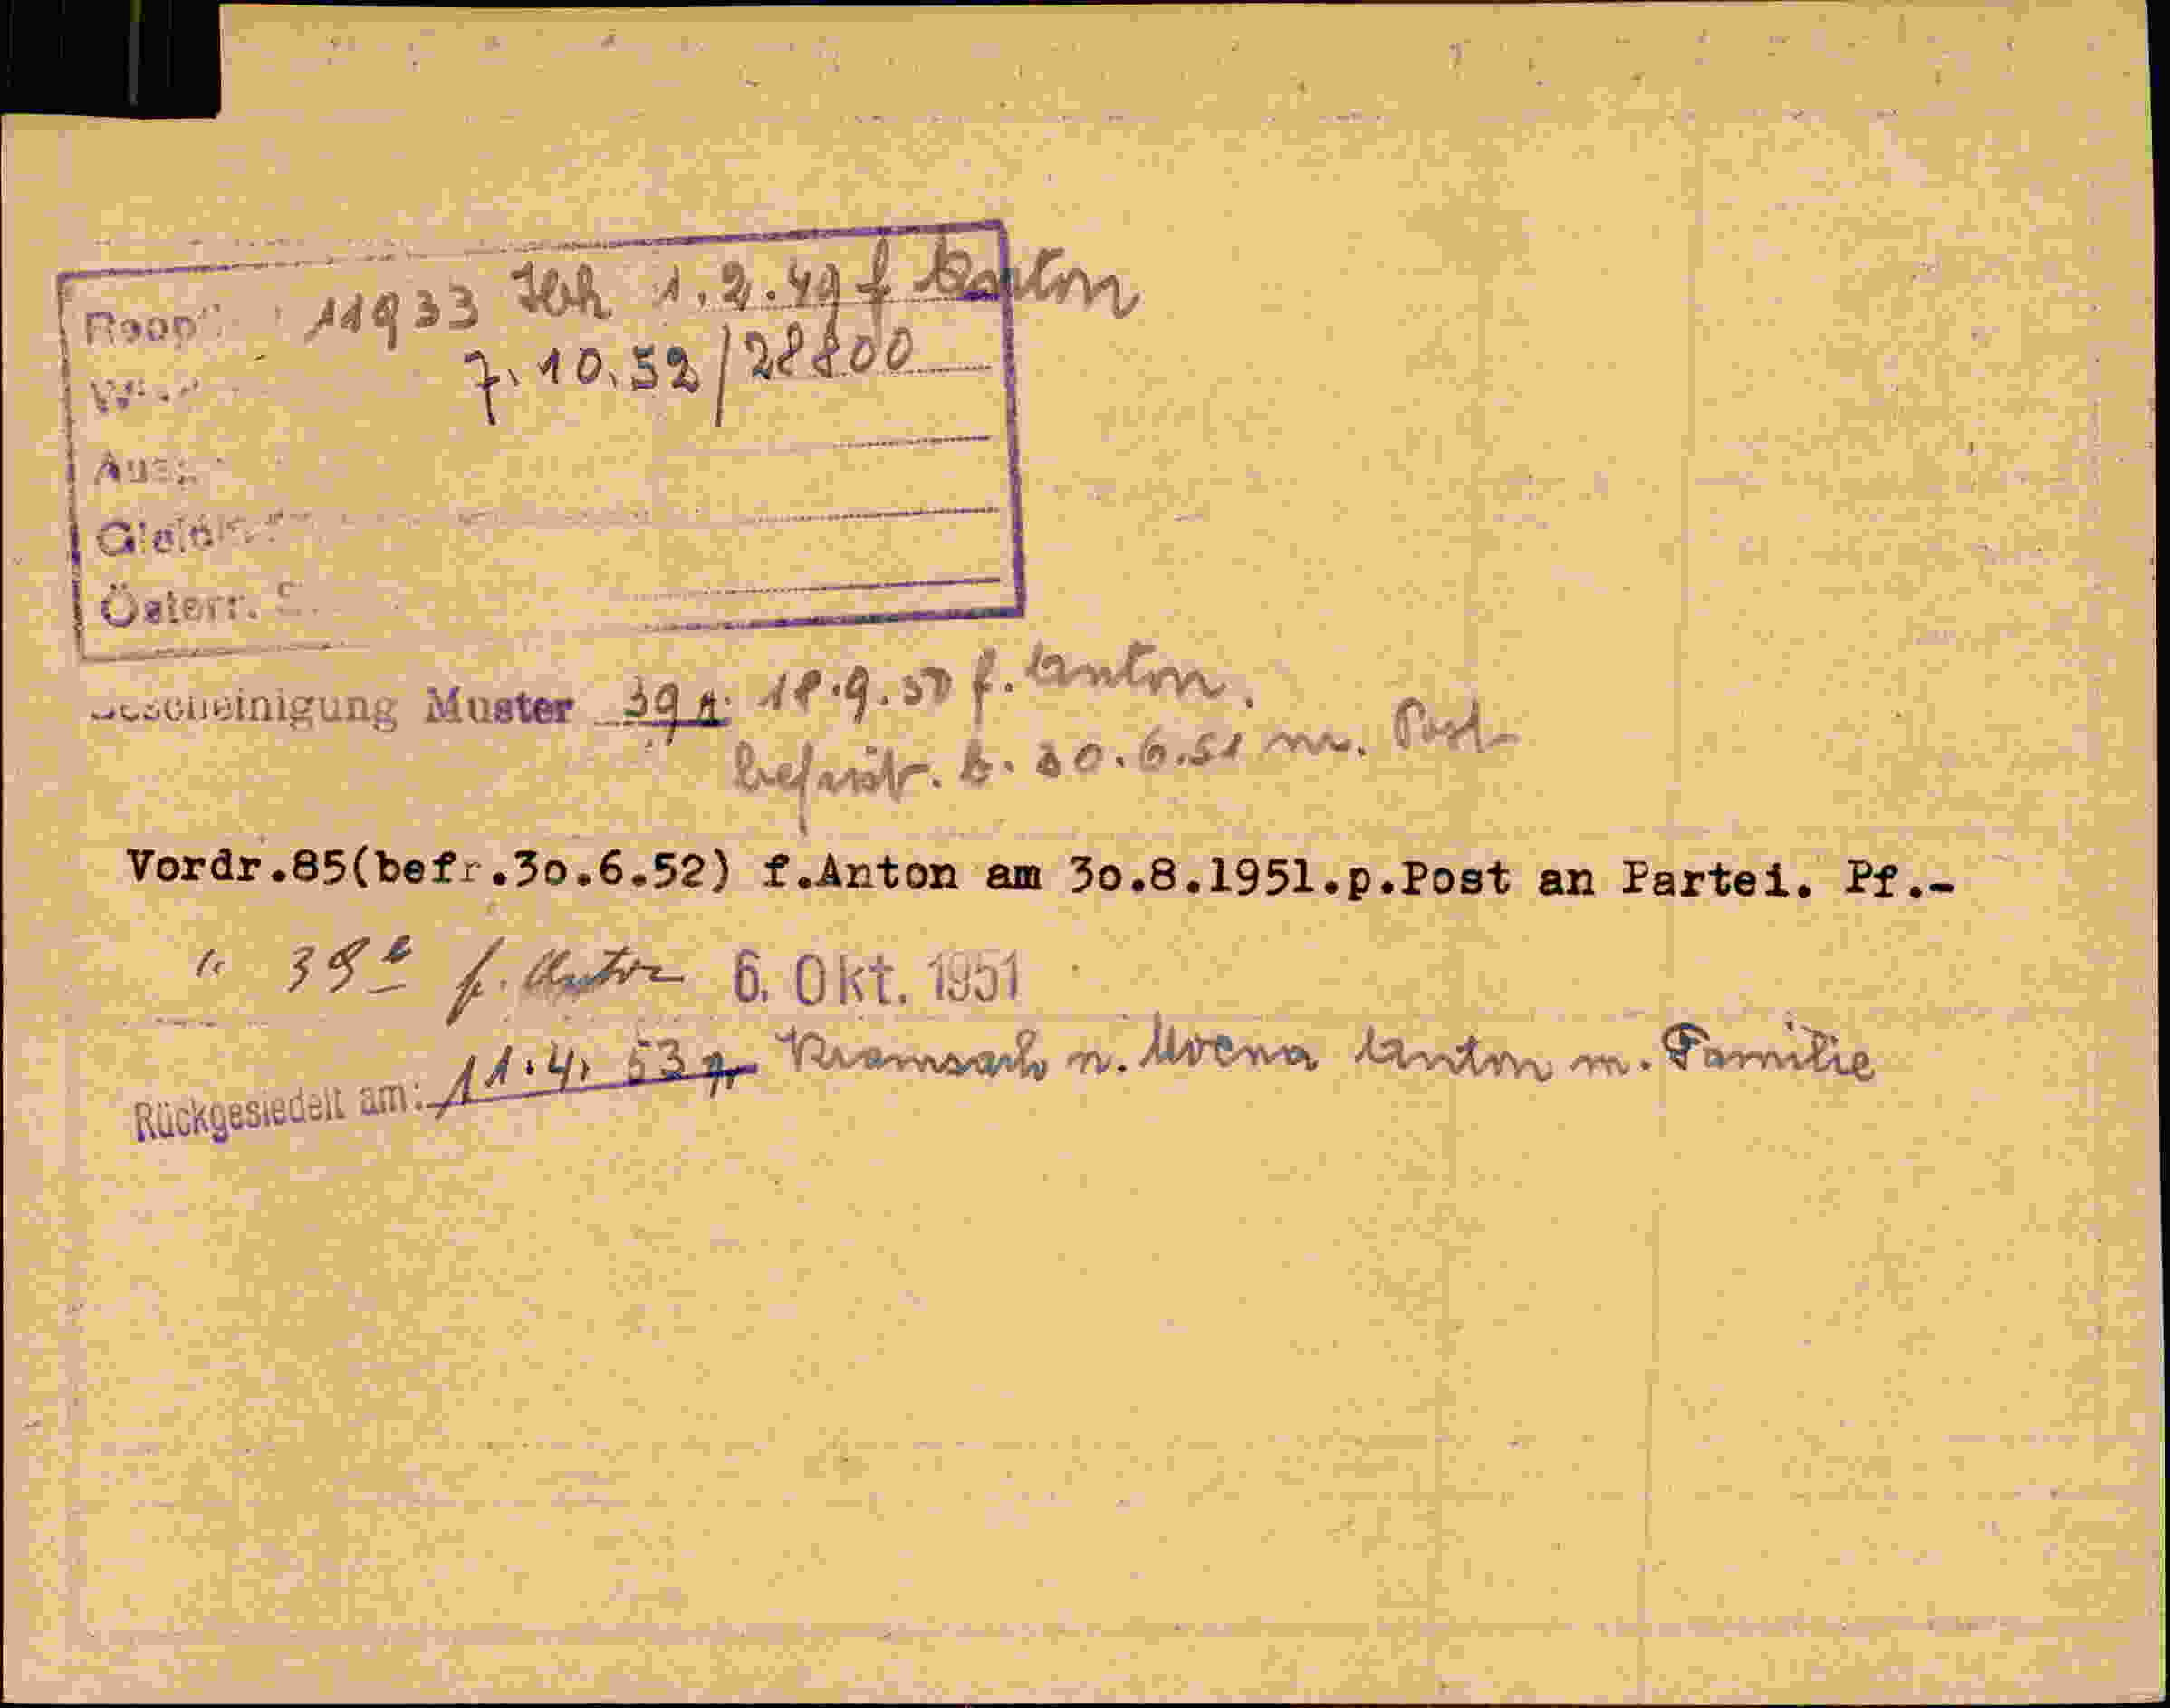 11933 1.2.49 f Anton
7.10.52/28800
Österr. S.
Bescheinigung Muster 39 a. 18.9.50 f. Anton.
befrist. b. 30.6.51 m. Post
Vordr.85(befr.3o.6.52) f.Anton am 3o.8.1951.p.Post an Partei. Pf.-
" 39 f. Anton 6. Okt. 1951
Rückgesiedelt am: 11.4. 53 Kramsach n. Moena Anton m. Familie